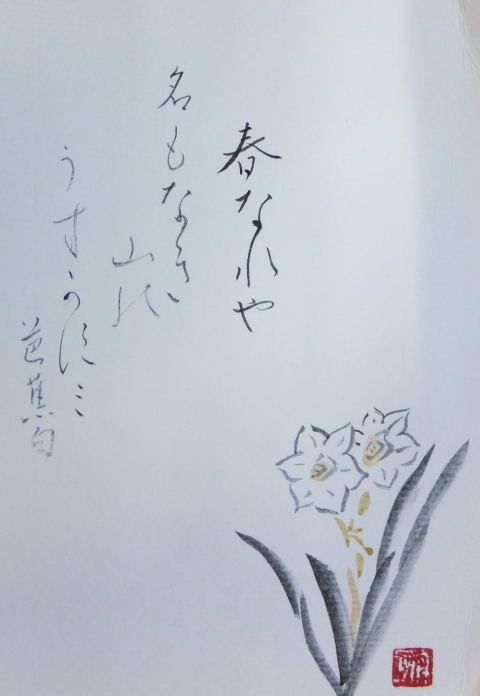 春なれや
名もなき
山の
うすかすミ
芭蕉句